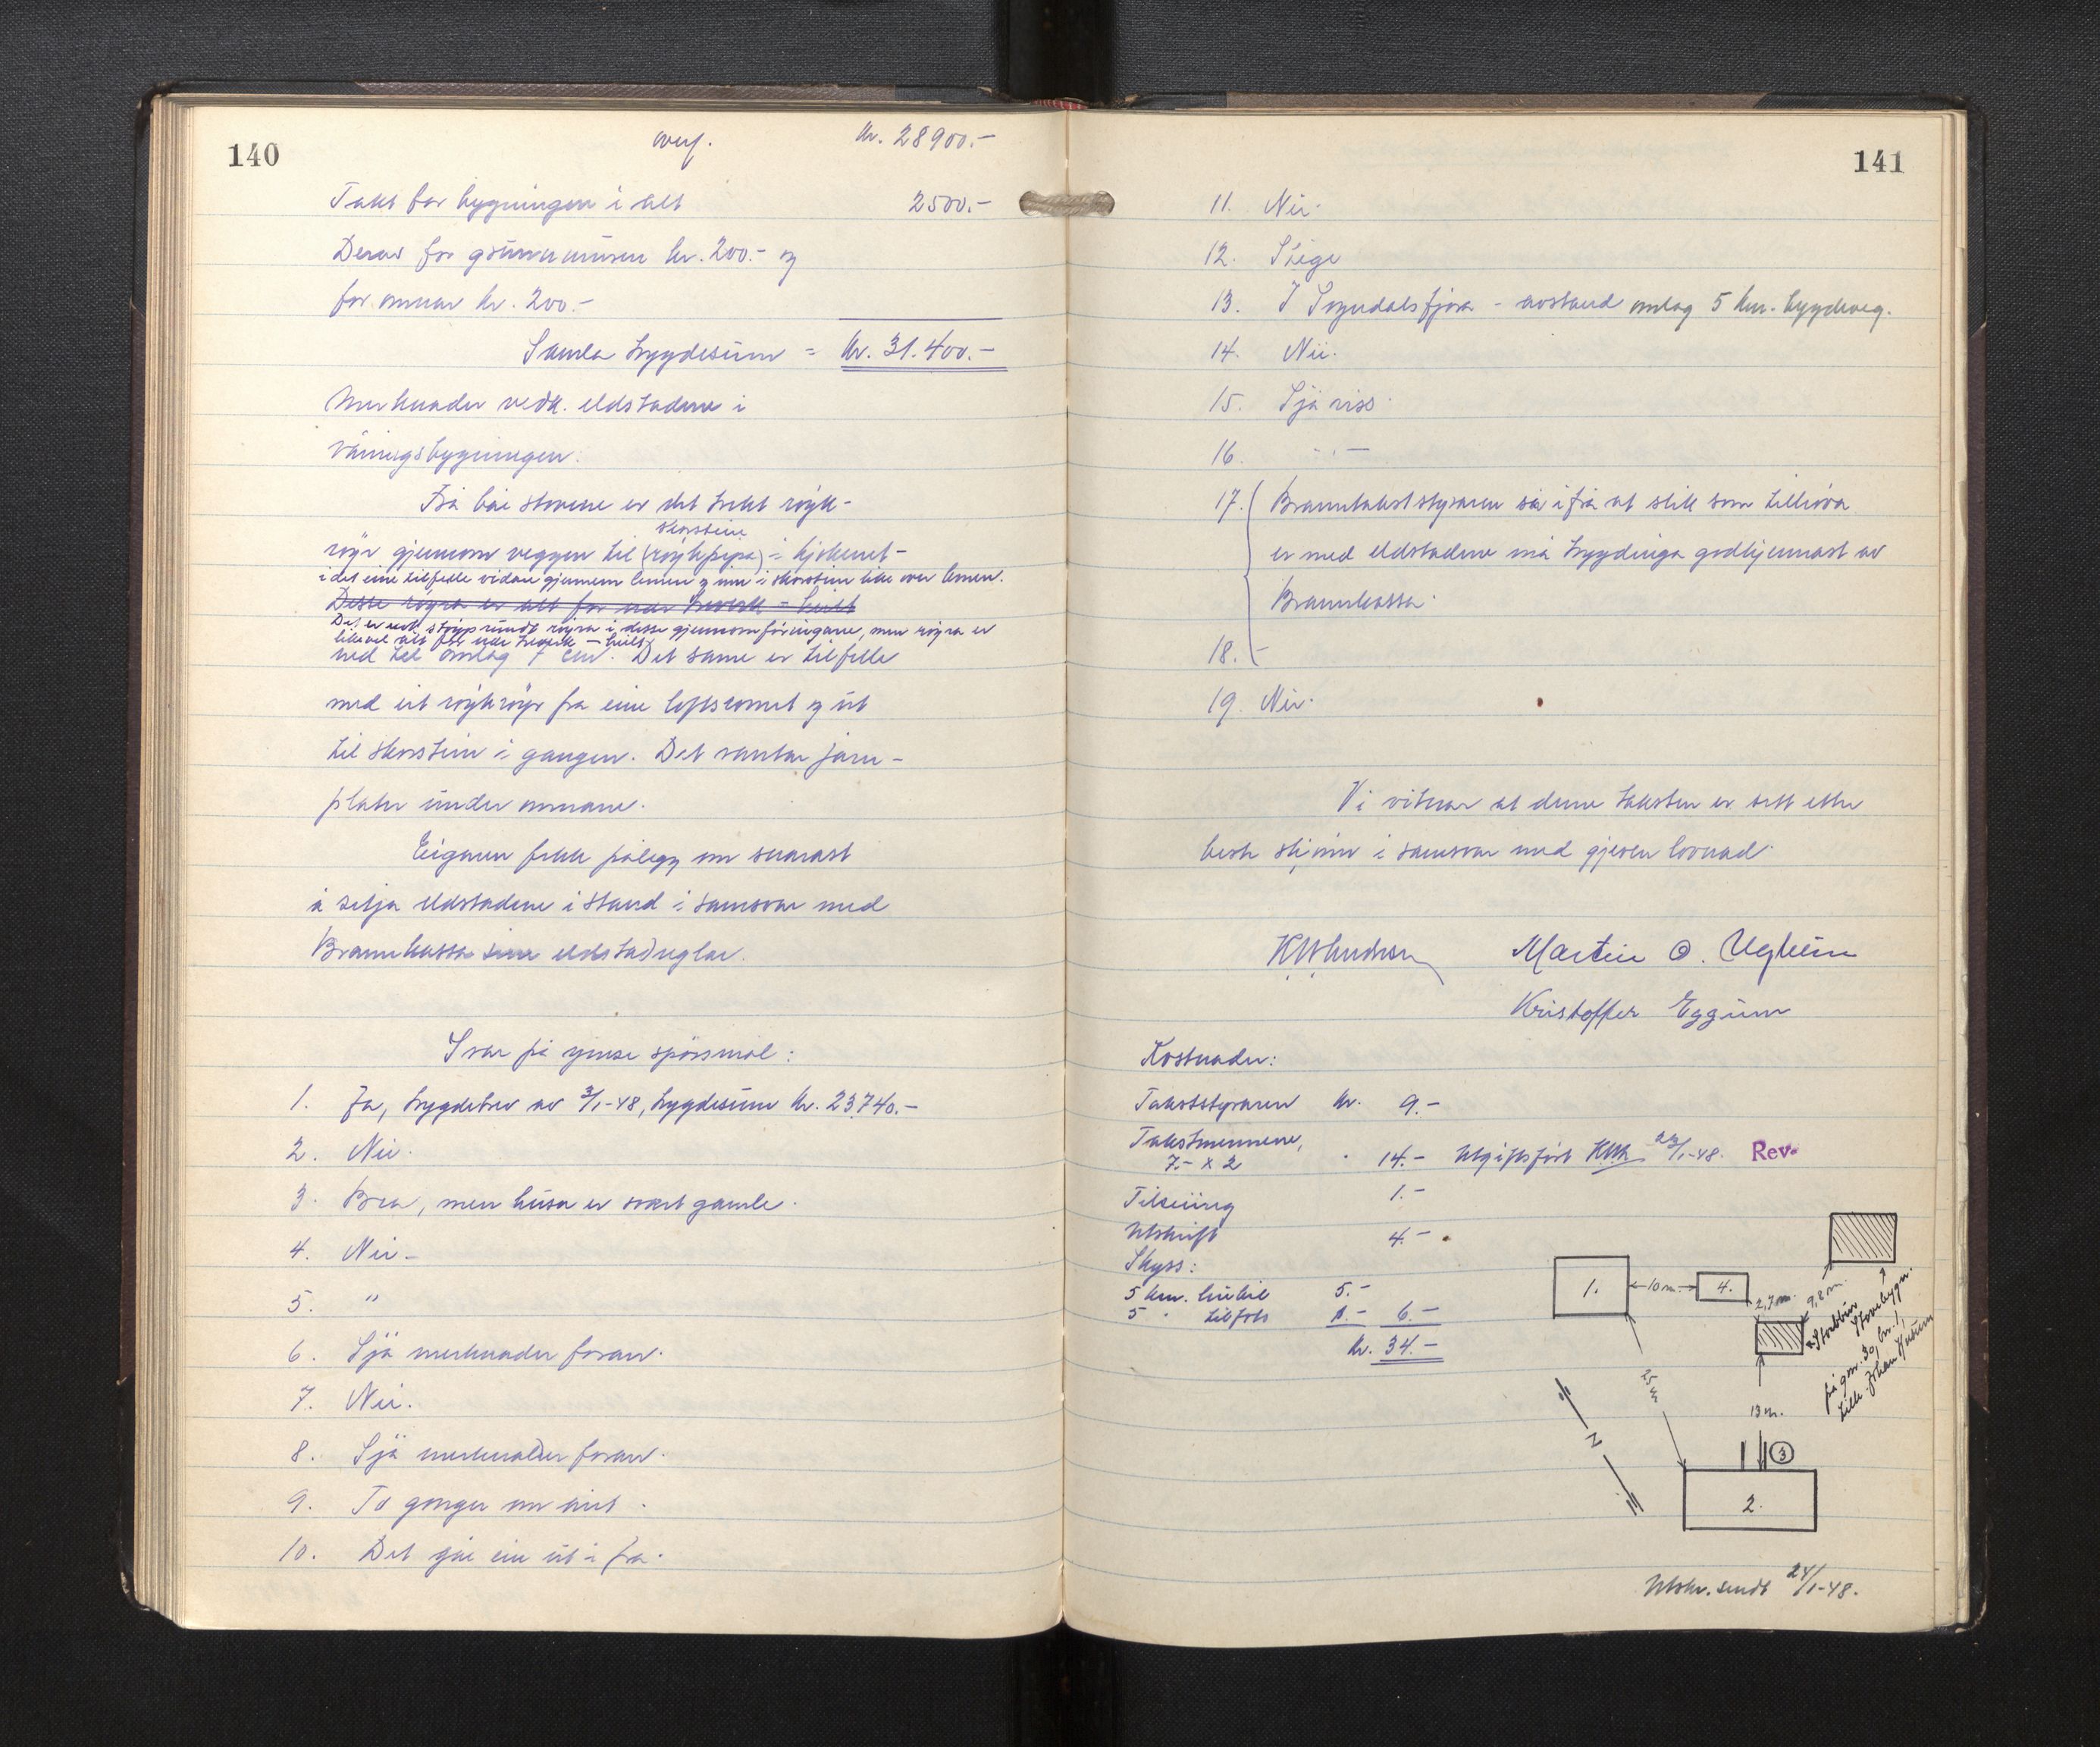 140
overf. kr. 28900.-
Takst for bygningen i alt 2500.-
Derav for grunnmuren kr. 200.- og
for omnar kr. 200.-
Samla trygdesum = kr. 31.400.-
Merknader vedk. eldstadene i
våningsbygningen.
Frå båe stovene er det trekt røyk-
skorstein
røyr gjennom veggen til (røykpipa) i kjøkenet -
i det eine tilfelle vidare gjennom lemen og inn i skorstein like over lemen.
Desse røyra er alt for nær treverk - heilt
Det er nok støyp rundt røyra i desse gjennomføringane, men røyra er
likevel alt for nær treverk - heilt
ned til omlag 7 cm. Det same er tilfelle
med eit røykrøyr fra eine loftsromet og ut
til skorstein i gangen. Det vantar jarn-
plater under omnane.
Eigaren fekk pålegg om snarast
å setja eldstadene i stand i samsvar med
Brannkassa sine eldstadreglar.
Svar på ymse spørsmål:
1. Ja, trygdebrev av 3/1-48, trygdesum kr. 23.740.-
2. Nei.
3. Bra, men husa er svært gamle.
4. Nei.
5. "
6. Sjå merknader foran.
7. Nei.
8. Sjå merknader foran.
9. To gonger om året.
10. Det går ein ut i frå.
141
11. Nei.
12. Stige
13. I Sogndalsfjøra - avstand omlag 5 km. bygdeveg.
14. Nei.
15. Sjå riss.
16. - " -
17. Branntakststyraren sa i frå at slik som tilhøva
er med eldstadene må trygdinga godkjennast av
Brannkassa.
18. -
19. Nei.
Vi vitnar at denne taksten er sett etter
beste skjønn i samsvar med gjeven lovnad.
Martin O. Ugheim
Kristoffer Eggum
Kostnader:
Takststyraren kr. 9.-
Takstmennene,
7.- x 2 " 14.- Utgiftsført 22/1-48. Rev.
Tilseiing 1.-
Utskrift 4.-
Skyss:
5 km. linebil 5.-
5 " tilfots 1.- 6.-
kr. 34.-
1.
10 m.
4.
2,7 m.
9,8 m.
Stabbur
Stovebygn.
på gnr. 30, bnr. 1,
tilh. Johan Husum
25 m
13 m.
N
3
2.
Utskr. sendt 24/1-48.